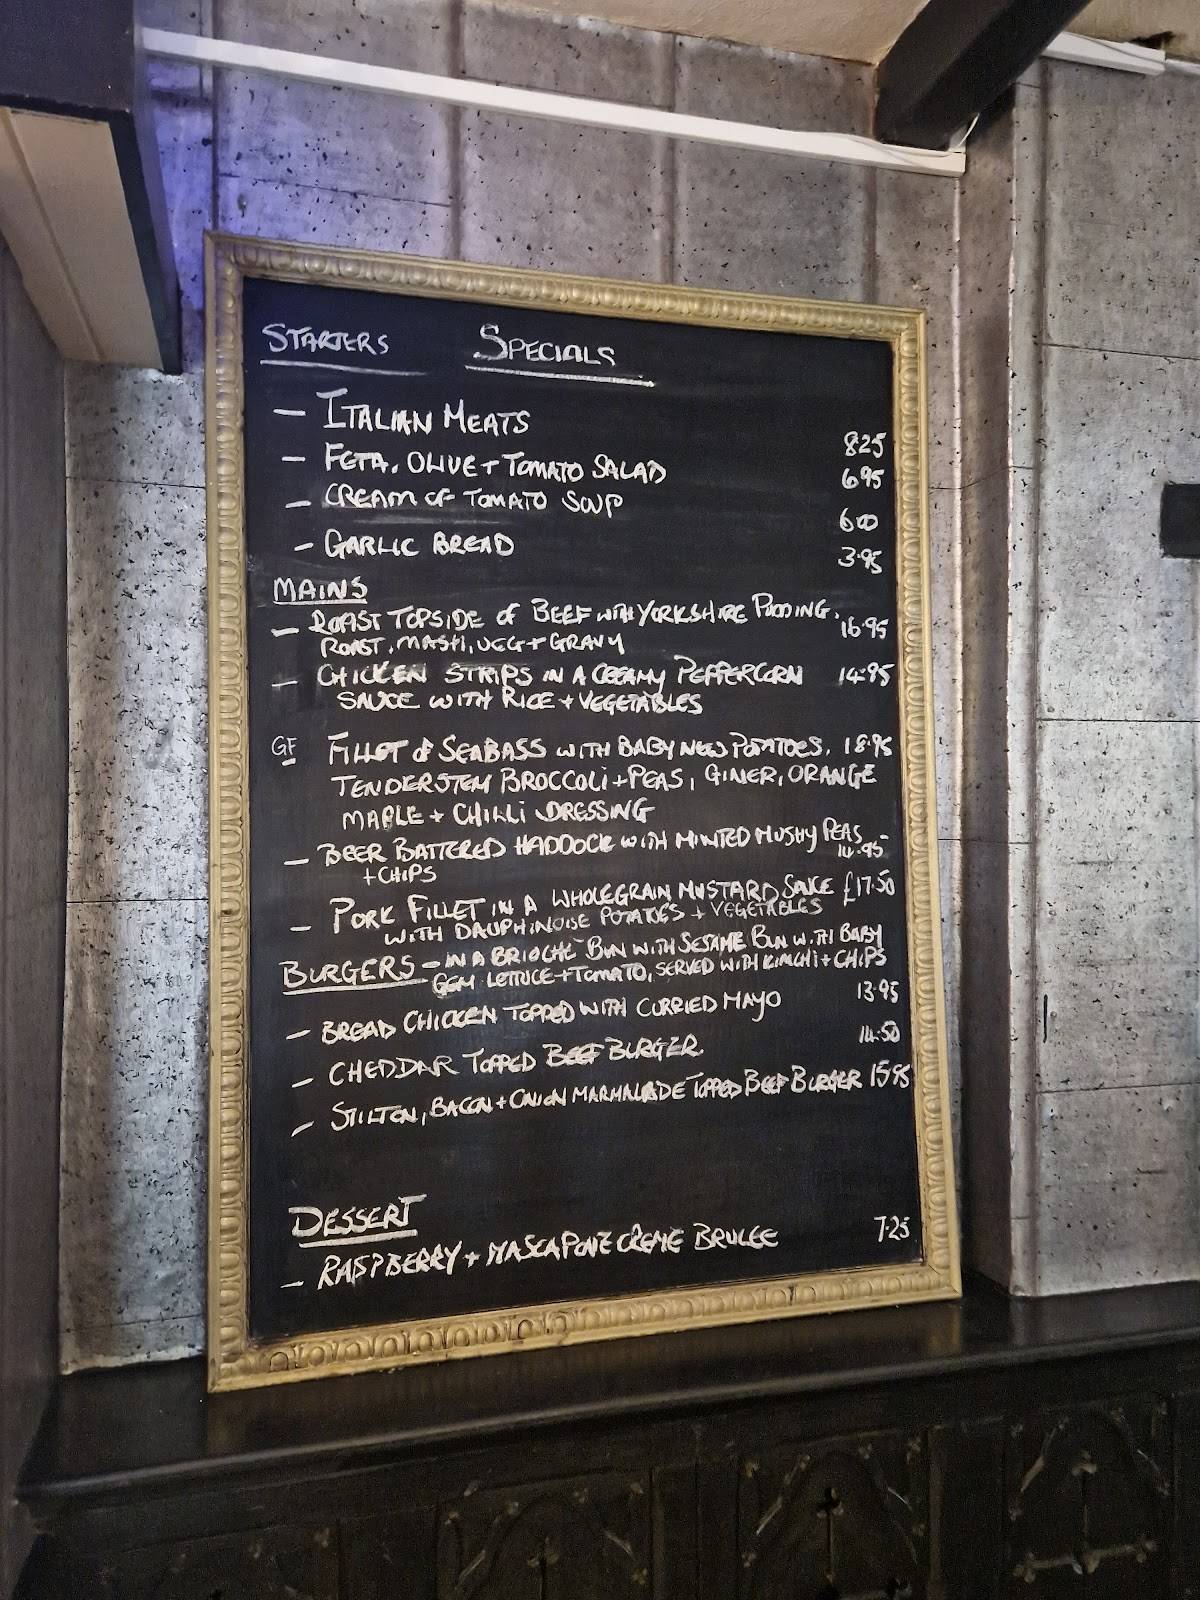 STARTERS SPECIALS
- ITALIAN MEATS 825
- FETA, OLIVE + TOMATO SALAD 695
- CREAM OF TOMATO SOUP 600
- GARLIC BREAD 3.95
MAINS
- ROAST TOPSIDE of BEEF WITH YORKSHIRE PUDDING, 16.95
ROAST, MASH, VEG + GRAVY
- CHICKEN STRIPS IN A CREAMY PEPPERCORN 14.95
SAUCE WITH RICE + VEGETABLES
GF FILLET of SEABASS WITH BABY NEW POTATOES, 18.95
TENDERSTEM BROCCOLI + PEAS, GINER, ORANGE
MAPLE + CHILLI DRESSING
- BEER BATTERED HADDOCK WITH MINTED MUSHY PEAS 14.95
+ CHIPS
- PORK FILLET IN A WHOLEGRAIN MUSTARD SAUCE £17.50
WITH DAUPHINOISE POTATOES + VEGETABLES
BURGERS - IN A BRIOCHE BUN WITH SESAME BUN WITH BABY
GEM LETTUCE + TOMATO, SERVED WITH KIMCHI + CHIPS
- BREAD CHICKEN TOPPED WITH CURRIED MAYO 13.95
- CHEDDAR TOPPED BEEF BURGER. 14.50
- STILTON, BACON + ONION MARMALADE TOPPED BEEF BURGER 15.95
DESSERT
- RASPBERRY + MASCAPONE CREME BRULEE 7.25